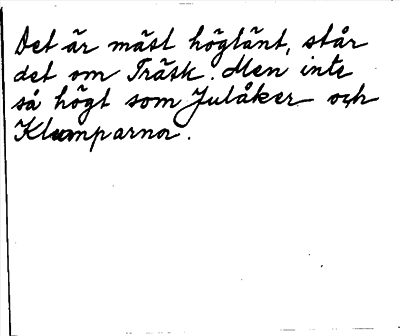 Det är mäst högtänt, står
det om Träsk. Men inte
så högt som Julåker och
Klumparna.